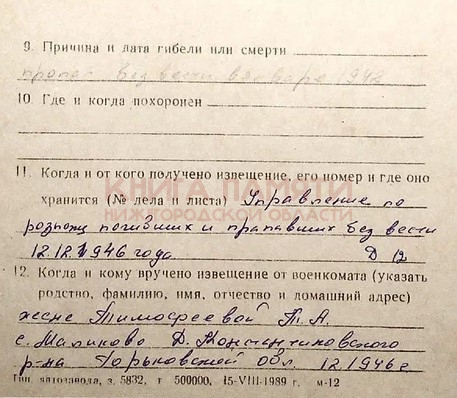 9. Причина и дата гибели или смерти
пропал без вести в январе 1942
10. Где и когда похоронен
11. Когда и от кого получено извещение, его номер и где оно
хранится (№ дела и листа) Управление по
КНИГА ПАМЯТИ
НИЖЕГОРОДСКОЙ ОБЛАСТИ
розыску погибших и пропавших без вести
12.12.1946 года Д 12
12. Когда и кому вручено извещение от военкомата (указать
родство, фамилию, имя, отчество и домашний адрес)
жене Тимофеевой Т. А.
с. Маликово Д. Константиновского
р-на Горьковской обл. 12.1946 г
Тип. автозавода, з. 5832, т 500000, 15-VIII-1989 г. м-12